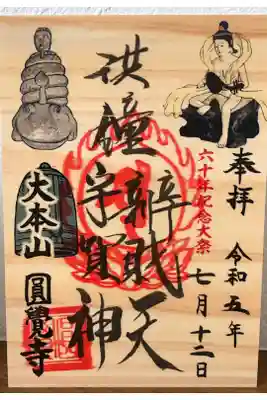 奉拝 令和五年
七月十二日
六十年記念大祭
洪鐘
辨戝天
宇賀神
大本山
圓覺寺